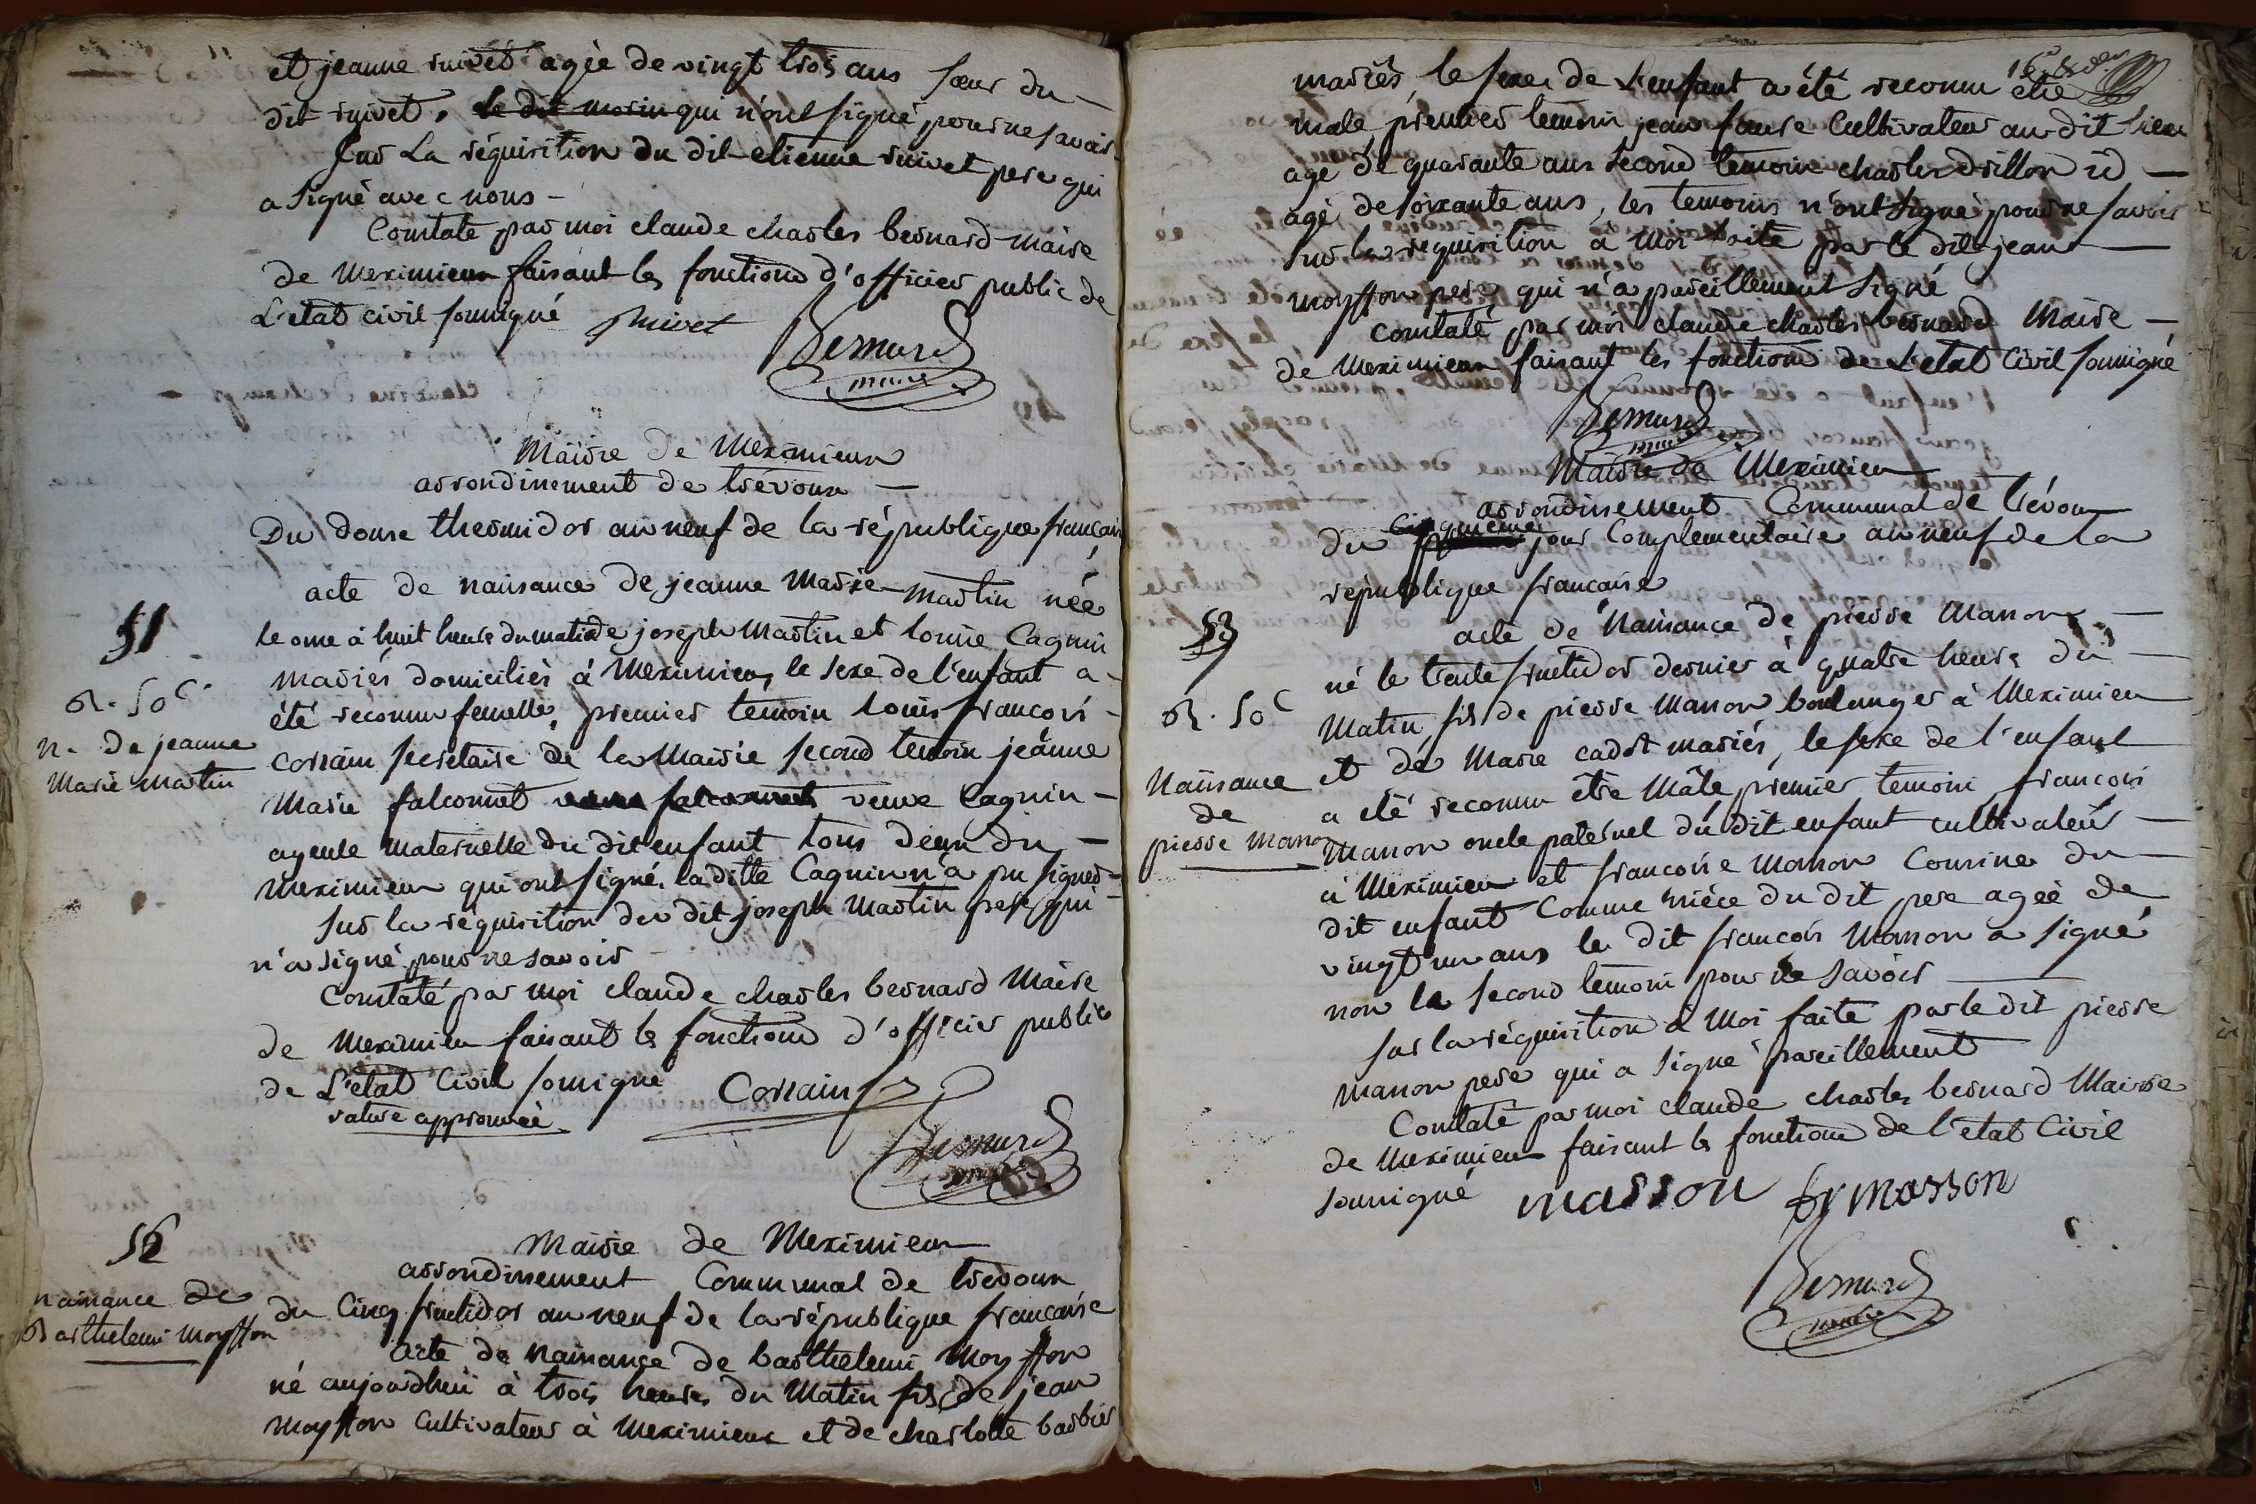 et jeanne suivet agée de vingt trois ans sœur du
dit suivet, le dit morin qui n'ont signé pour ne savoir
sur La réquisition du dit etienne suivet pere qui
a signé avec nous
Constaté par moi claude charles bernard maire
de meximieux faisant les fonctions d'officier public de
L'etat civil soussigné suivet
Bernard
maire
Mairie de Meximieux
arrondissement de trévoux
Du douze thermidor an neuf de la république francaise
acte de naissance de jeanne Marie Martin née
51
le onze à huit heures du matin de joseph Martin et louise Cagnin
mariés domiciliés à Meximieux, le sexe de l'enfant a
été reconnu femelle, premier temoin louis francois
n. de jeanne
Marie Martin
Corrain secretaire de la Mairie second temoin jeanne
Marie falconnet veuve falconnet veuve Cagnin
ayeule maternelle du dit enfant tous deux du
Meximieux qui ont signé, la ditte Cagnin n'a pu signer
sur la réquisition du dit joseph Martin pere qui
n'a signé pour ne savoir
Constaté par moi claude charles bernard Maire
de Meximieux faisant les fonctions d'officier public
de L'etat Civil soussigné Corrain
rature approuvée
Bernard
maire
52
Mairie de Meximieux
arrondissement Communal de trevoux
naissance de
Barthelemi moyffon
du Cinq fructidor an neuf de la république francaise
acte de naissance de barthelemi Moyffon
né aujourdhui à trois heures du Matin fils de jean
moyffon Cultivateur à Meximieux et de charlotte barbier
mariés, le sexe de L'enfant a été reconnu etre
male premier temoin jean faure Cultivateur au dit lieu
agé de quarante ans second temoin charles drillon id
agé de soixante ans, les temoins n'ont signé pour ne savoir
sur la requisition à moi faite par le dit jean
moyffon pere qui n'a pareillement signé
constaté par moi claude charles bernard Maire
de Meximieux faisant les fonctions de L'etat Civil soussigné
Bernard
maire
Mairie de Meximieux
arrondissement Communal de trévoux
du cinquieme jour Complementaire an neuf de la
république francaise
53
acte de Naissance de pierre Masson
né le trente fructidor dernier à quatre heures du
Matin, fils de pierre Masson boulanger à Meximieux
Naissance
de
pierre Masson
et de Marie cadot mariés, le sexe de l'enfant
a été reconnu etre Mâle, premier temoin francois
Masson oncle paternel du dit enfant cultivateur
à Meximieux et francoise Masson Cousine du
dit enfant Comme niéce du dit pere agée de
vingt un ans le dit francois Masson a signé
non le second temoin pour ne savoir
sur la réquisition à Moi faite par le dit pierre
Masson pere qui a signé pareillement
Constaté par moi claude charles bernard Maire
de Meximieux faisant les fonctions de l'etat Civil
soussigné masson fr masson
Bernard
maire